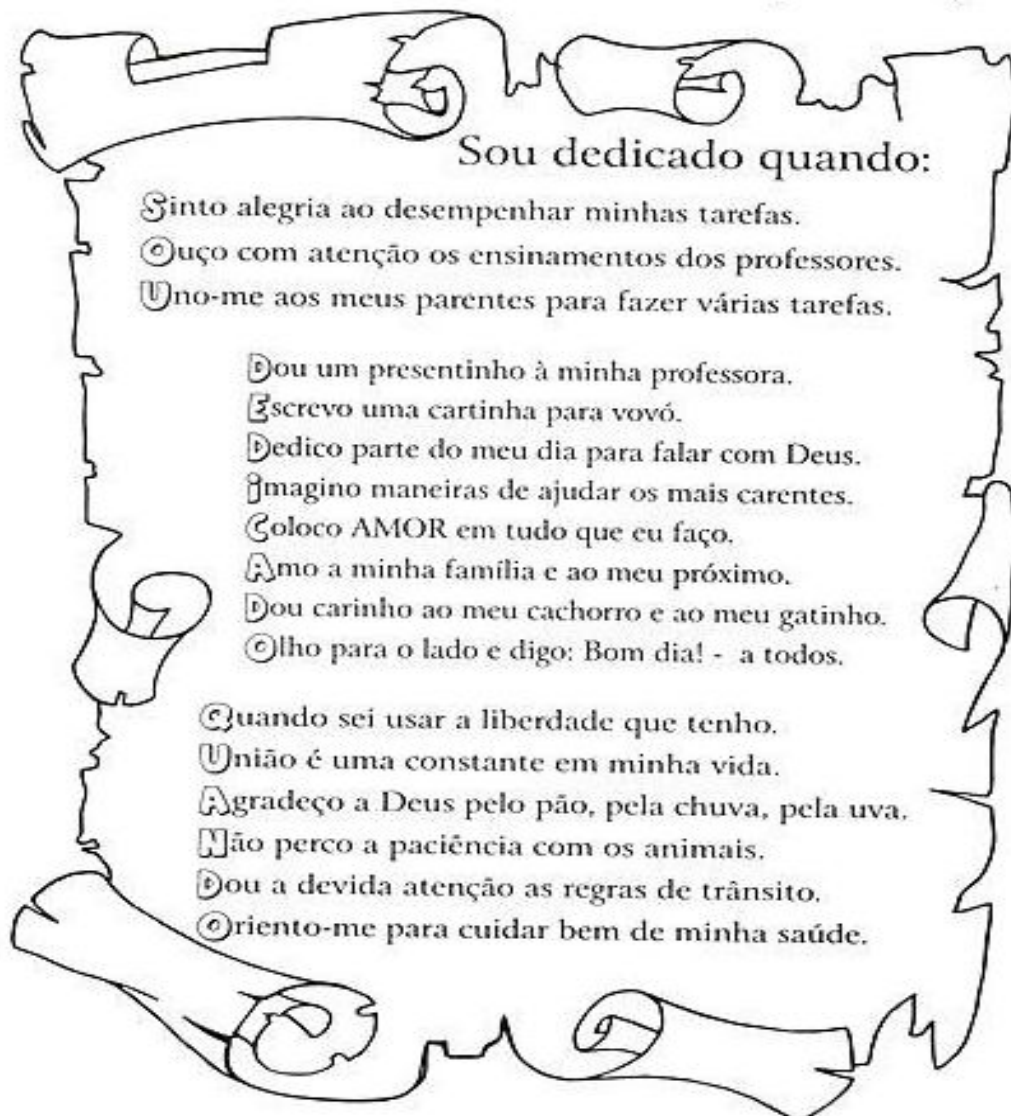 Sou dedicado quando:
Sinto alegria ao desempenhar minhas tarefas.
Ouço com atenção os ensinamentos dos professores.
Uno-me aos meus parentes para fazer várias tarefas.
Dou um presentinho à minha professora.
Escrevo uma cartinha para vovó.
Dedico parte do meu dia para falar com Deus.
imagino maneiras de ajudar os mais carentes.
Coloco AMOR em tudo que eu faço.
Amo a minha família e ao meu próximo.
Dou carinho ao meu cachorro e ao meu gatinho.
Olho para o lado e digo: Bom dia! - a todos.
Quando sei usar a liberdade que tenho.
União é uma constante em minha vida.
Agradeço a Deus pelo pão, pela chuva, pela uva.
Não perco a paciência com os animais.
Dou a devida atenção as regras de trânsito.
Oriento-me para cuidar bem de minha saúde.